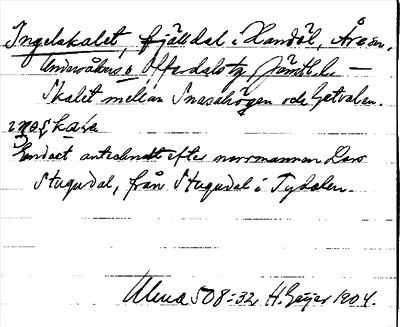 Ingelskalet, fjälldal i Handöl, Åre sn,
Undersåkers o Offerdals tg Jämtl. l.—
Skalet mellan Snasahögen och Getvalen.
Endast antecknat efter norrmannen Lars
Stugudal, från Stugudal i Tydalen.
Ulma 508:32, H. Geijer 1904.